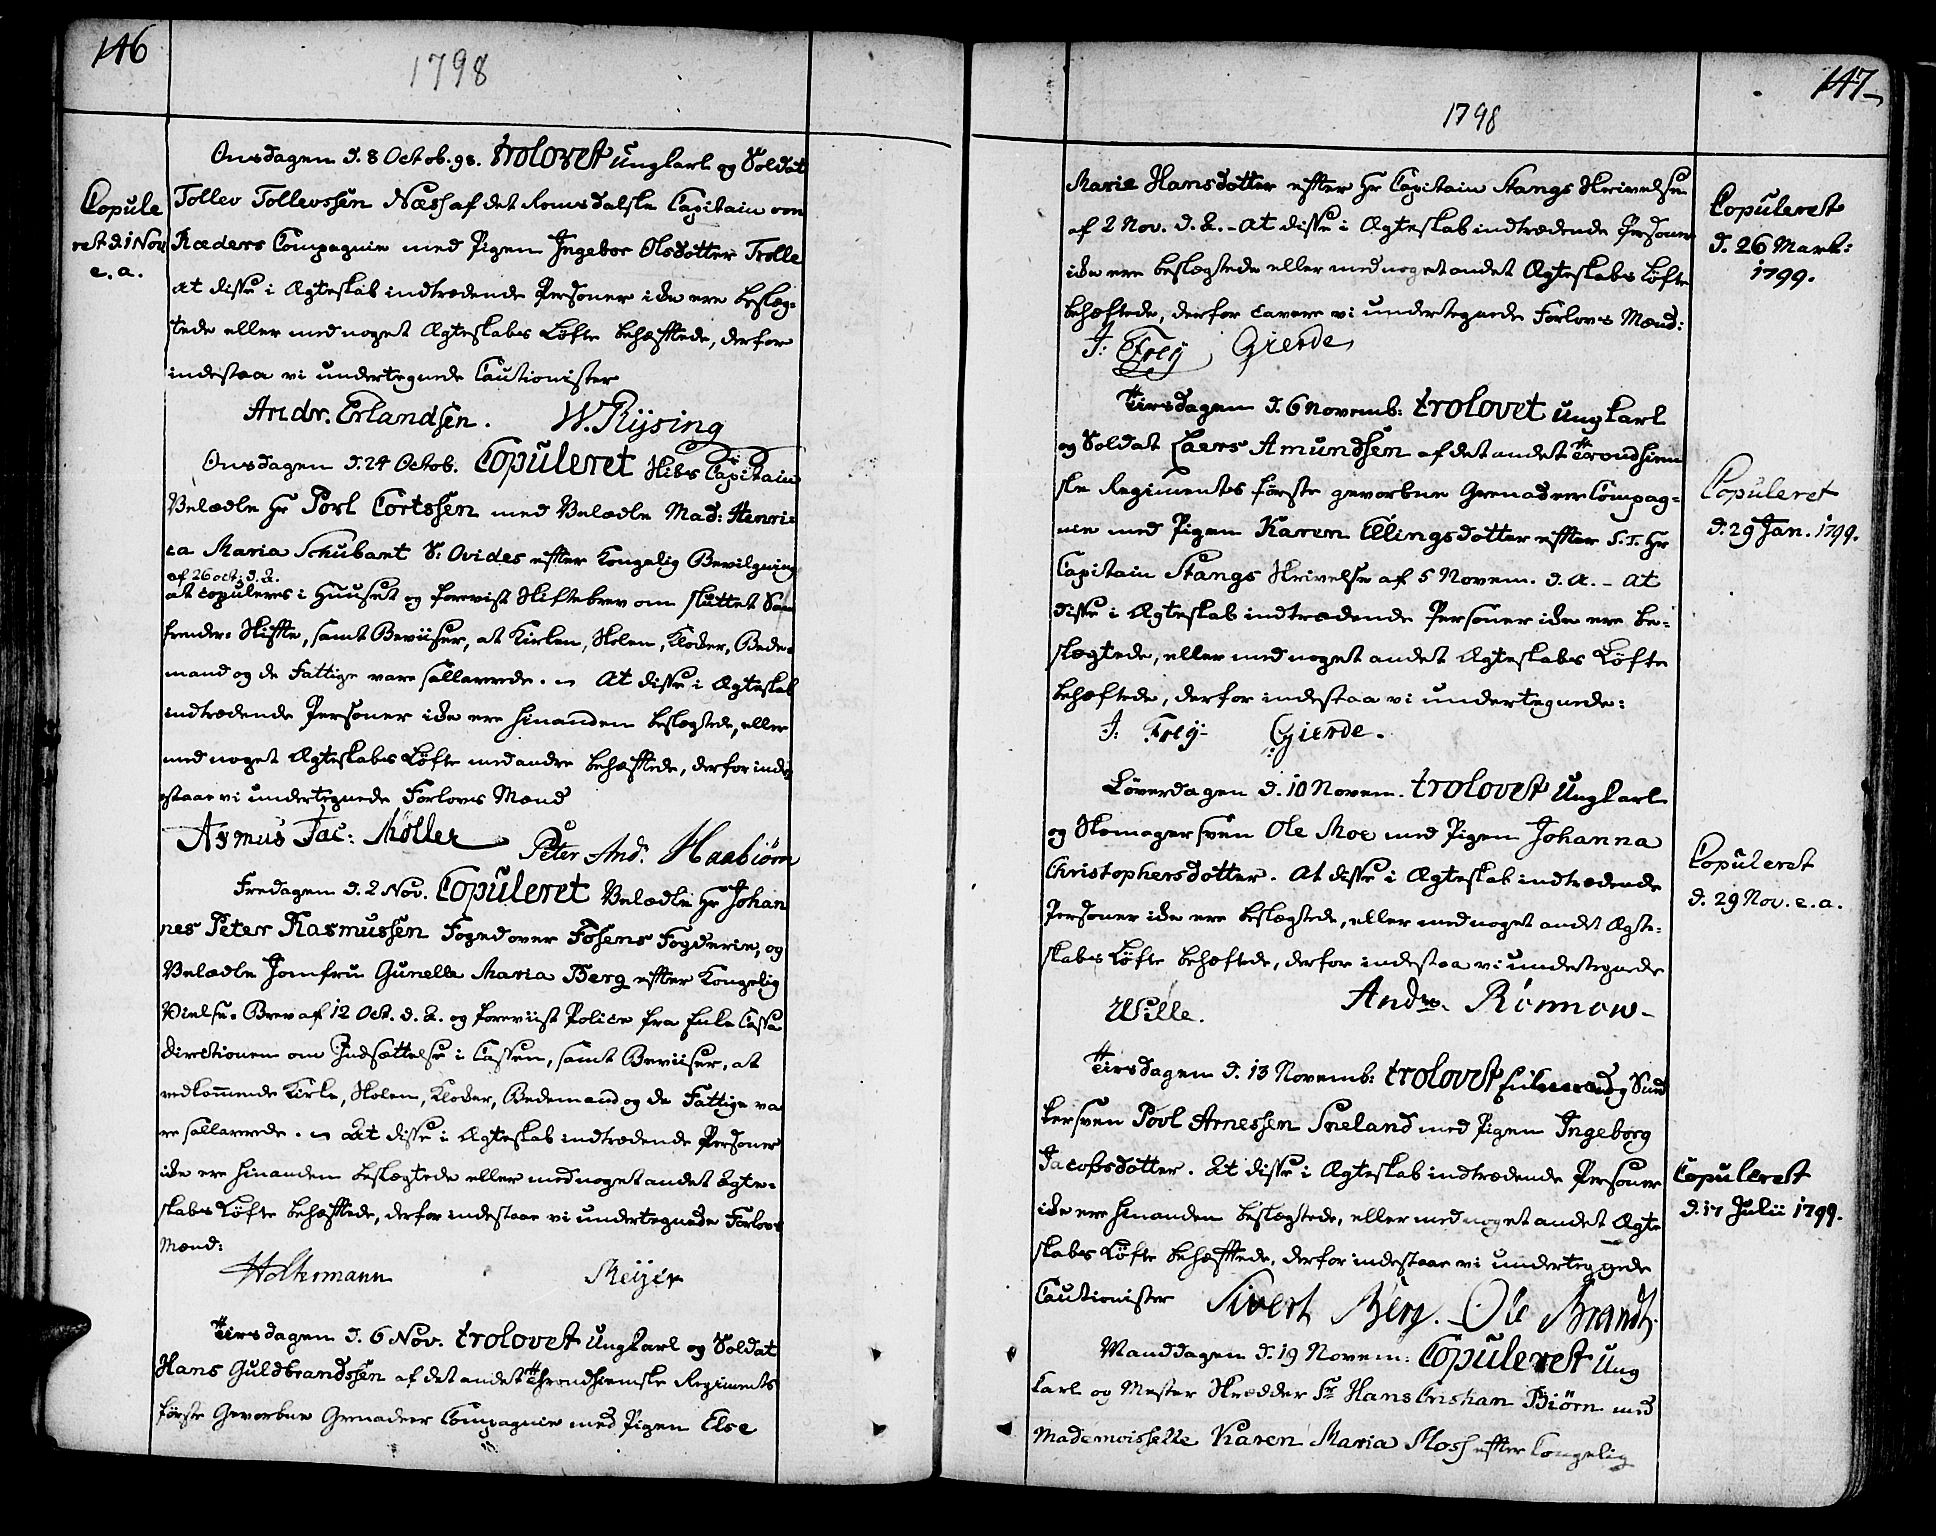 146
1798
Onsdagen d. 8 Octob. 98. trolovet Ungkarl og Soldat
Copule
Tollev Tollevssen Næss af det Romsdalske Capitain von
ret d. 1 Nov.
Ræders Compagnie med Pigen Ingebor Olsdotter Trolle
e. a.
at disse i Ægteskab indtrædende Personer ikke ere beslæg-
tede eller med noget Ægteskabs Løfte behæfftede, derfor
indestaa vi undertegnede Cautionister
Andr. Erlandsen. W. Rysing
Onsdagen d. 24 Octob. Copuleret Skibs Capitain
Velædle Hr Povl Cortssen med Velædle Mad: Henri-
ca Maria Schubart S: Ovides effter Kongelig Bevilgning
af 26 oct: d. A.
at copuleres i Huuset og forevist Skiftebrev om sluttet Sam
frender-Skiffte, samt Beviiser, at Kirken, Skolen, Klocker, Bede-
mand og de Fattige vare sallarerede. At disse i Ægteskab
indtrædende Personer ikke ere hinanden beslægtede, eller
med noget Ægteskabs Løfte med andre behæfftede, derfor inde
staae vi undertegnede Forlovs Mænd
Asmus Jac: Møller Peter And. Haabiørn
Fredagen d. 2 Nov. Copuleret Velædle Hr Johan
nes Peter Rasmussen Foged over Fosens Fogderie, og
Velædle Jomfru Gunelle Maria Berg effter Kongelig
Vielse-Brev af 12 Oct. d. A. og foreviist Police fra Enke Casse
Directionen om Indsættelse i Cassen, samt Beviiser, at
vedkommende Kirke, Skolen, Klocker, Bedemand og de Fattige va
re sallarerede. At disse i Ægteskab indtrædende Personer
ikke ere hinanden beslægtede eller med noget andet Ægte-
skabs Løfte behæfftede, derfor indestaae vi undertegnede Forlovs
Mænd:
Holtermann Meyer
Tirsdagen d. 6 Nov. trolovet Ungkarl og Soldat
Hans Guldbrandssen af det andet Throndhiemske Regiments
første Gevorbne Grenadeer Compagnie med Pigen Else
147
1798
Marie Hansdotter effter Hr Capitain Stangs Skrivelse
Copuleret
af 2 Nov. d. A. - At disse i Ægteskab indtrædende Personer
d. 26 Mart:
ikke ere beslægtede eller med noget andet Ægteskabs Løfte
1799.
behæftede, derfor cavere vi undertegnede Forlovs Mænd:
J: Frey Gierde
Tirsdagen d. 6 Novemb: trolovet Ungkarl
og Soldat Laers Amundsen af det andet Trondhiem
Copuleret
ske Regimentes første gevorbne Grenadeer Compag-
nie med Pigen Karen Ellingsdotter effter S. T. Hr
d. 29 Jan. 1799.
Capitain Stangs Skrivelse af 5 Novem. d. A. - At
disse i Ægteskab indtrædende Personer ikke ere be-
slægtede, eller med noget andet Ægteskabs Løfte
behæftede, derfor indestaa vi undertegnede:
J: Frey Gierde.
Løverdagen d. 10 Novem. trolovet Ungkarl
og Skomager sven Ole Moe med Pigen Johanna
Copuleret
Christophersdotter. At disse i Ægteskab indtrædende
d. 29 Nov. e. a.
Personer ikke ere beslægtede, eller med noget andet Ægte-
skabs Løfte behæftede, derfor indestaa vi undertegnede
Wille. Andrs. Rönnow
Tirsdagen d. 13 Novemb: trolovet Enkemand og Snid
kersven Povl Arnessen Sneland med Pigen Ingeborg
Jacobsdotter. At disse i Ægteskab indtrædende Personer
Copuleret
ikke ere hinanden beslægtede, eller med noget andet Ægte
d. 17 Julii 1799.
skabs Løfte behæfftede, derfor indestaae vi undertegnede
Cautionister Sivert Berg. Ole Brandt
Manddagen d. 19 Novem: Copuleret Ung
karl og Mester Skrædder Sr Hans Cristian Biørn med
Mademoisselle Karen Maria Moss effter Kongelig